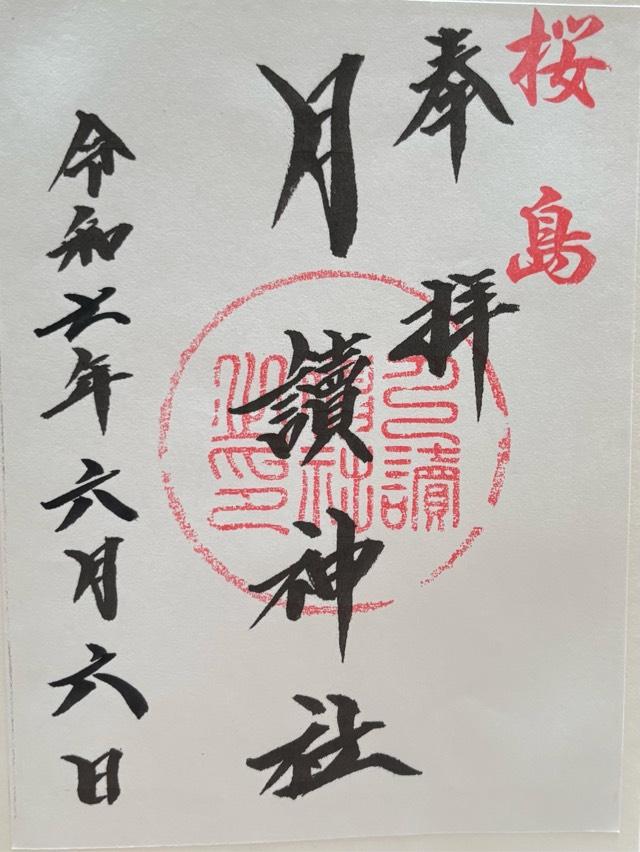 桜島
奉拝
月讀神社
月讀神社之印
令和七年六月六日